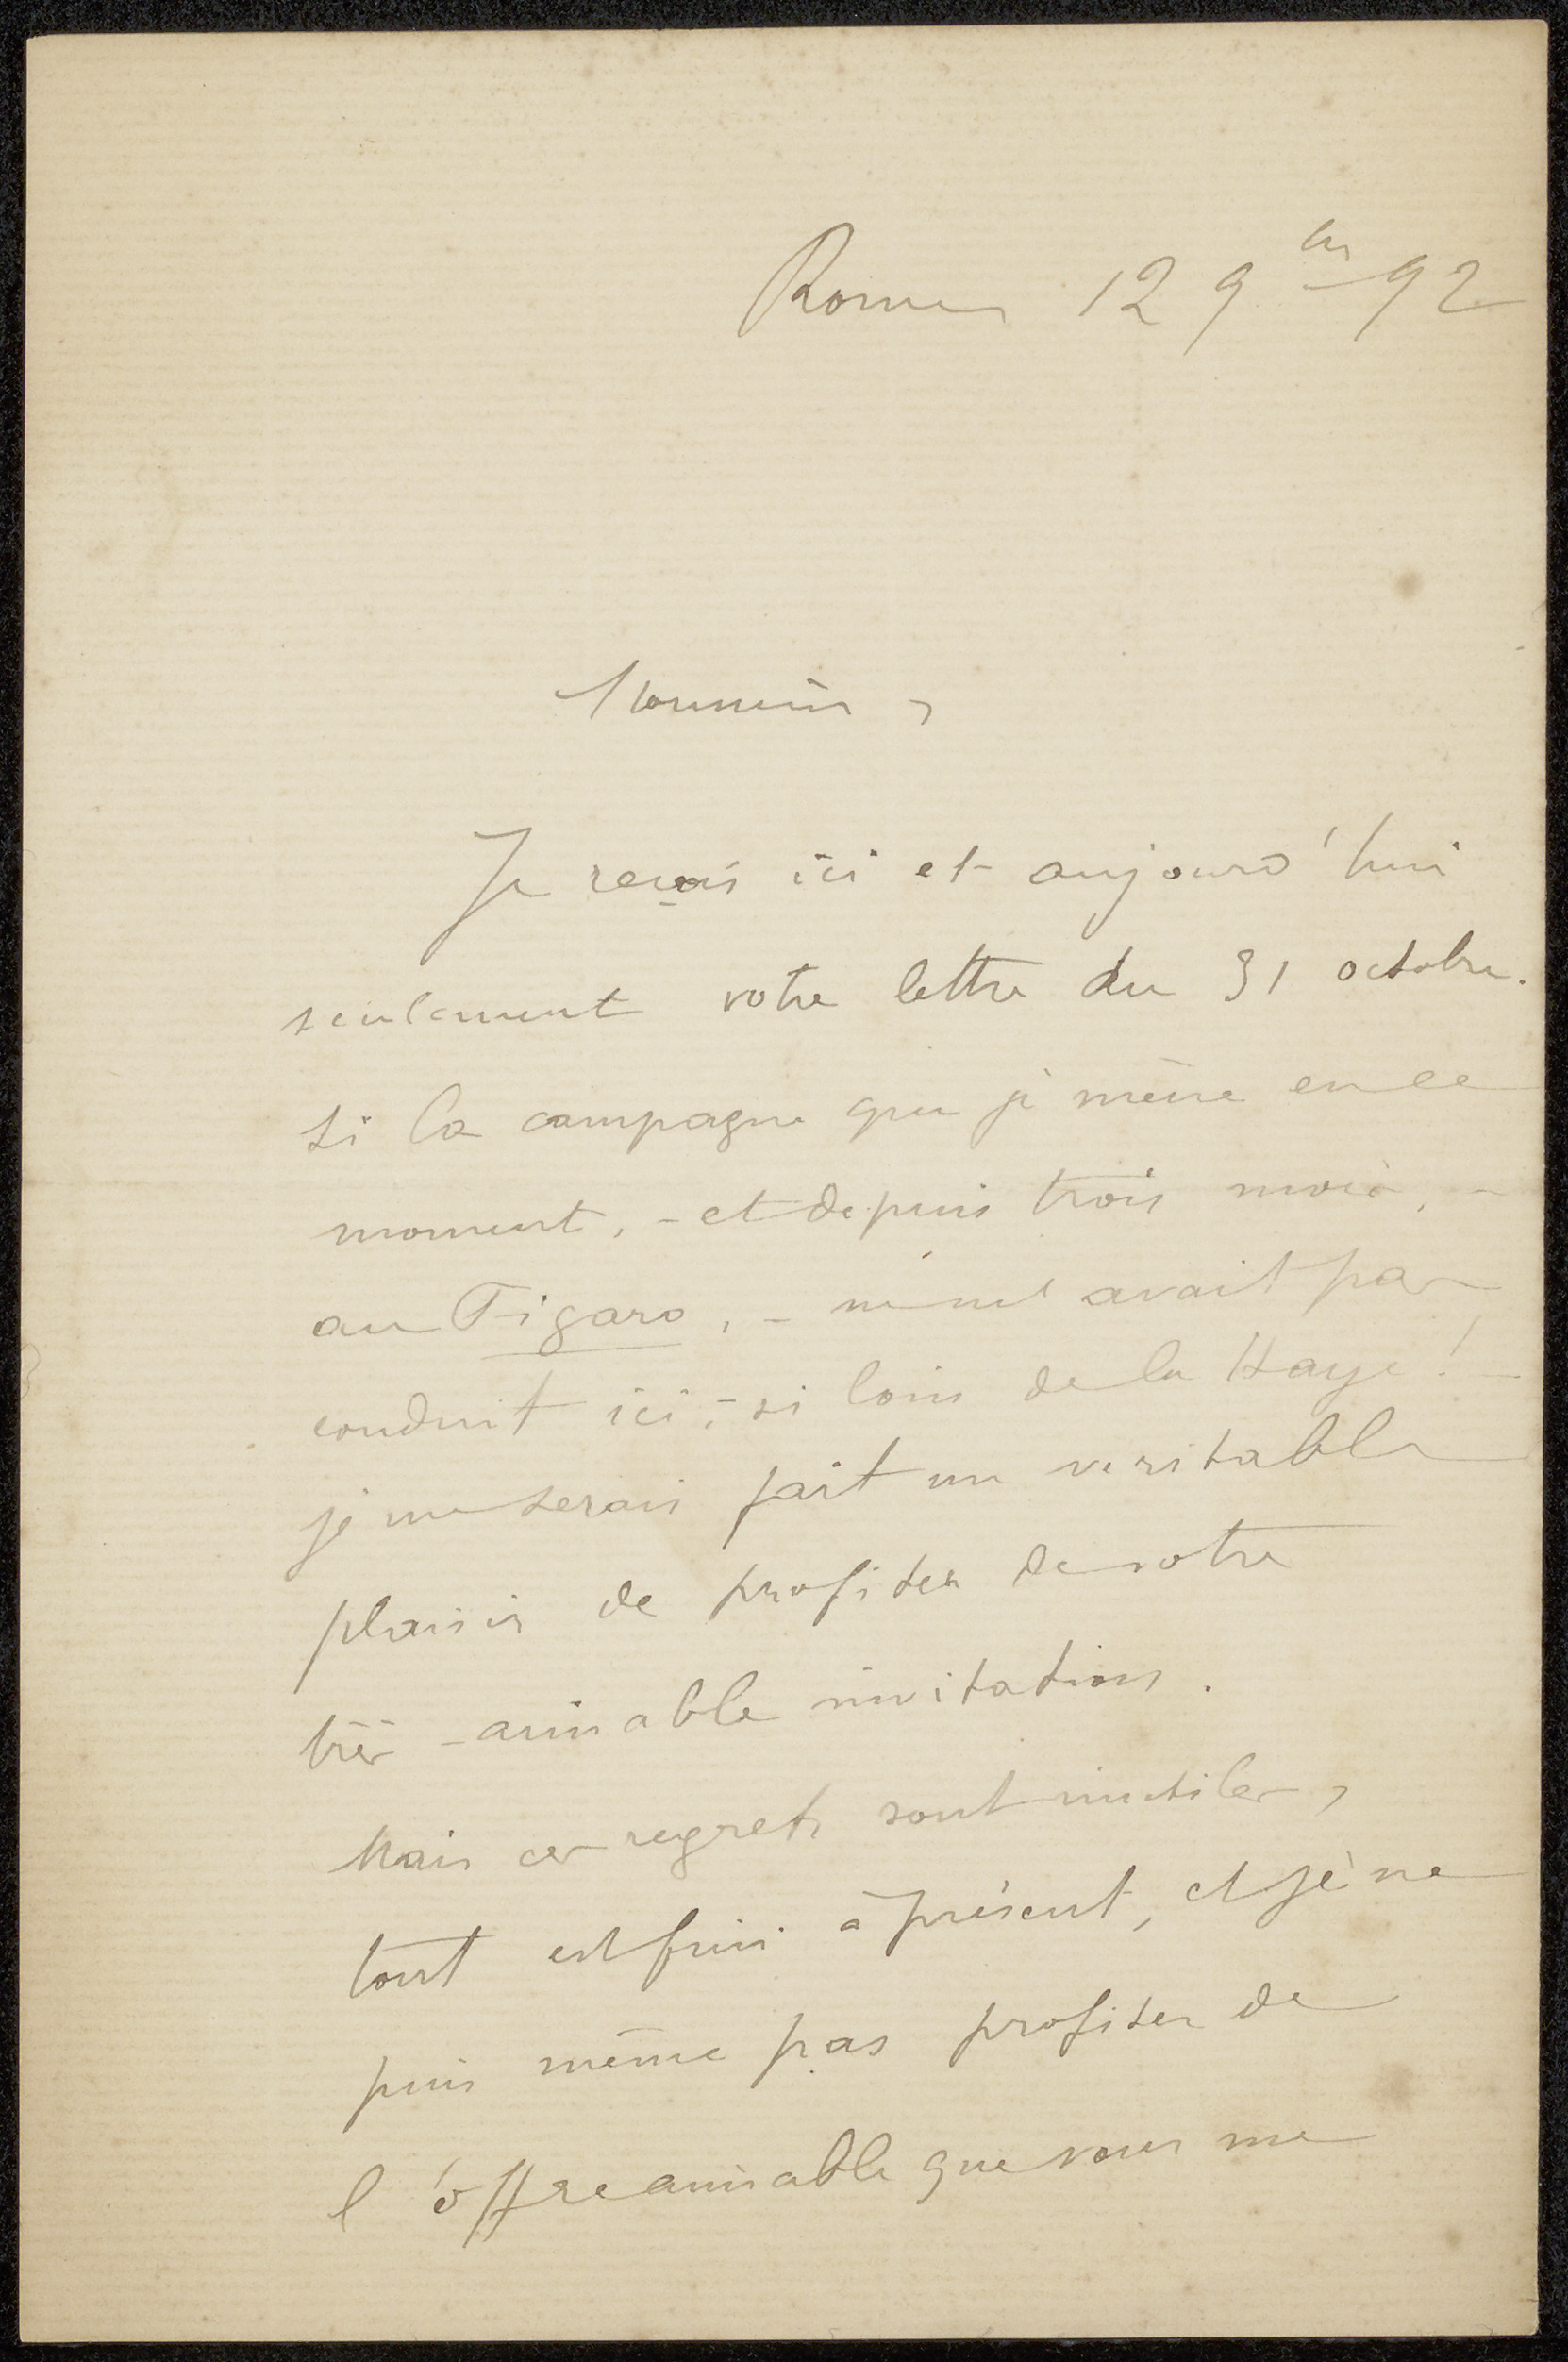 Rome 12 9bre 92
Monsieur,
Je reçois ici et aujourd'hui
seulement votre lettre du 31 octobre.
Si la campagne que je mène en ce
moment, - et depuis trois mois, -
au Figaro, - ne me avait pas
conduit ici, - si loin de la Haye! -
je me serais fait un veritable
plaisir de profiter de votre
très-aimable invitation.
Mais ces regrets sont inutiles,
tout est fini à présent, et je ne
puis même pas profiter de
l'offre aimable que vous me